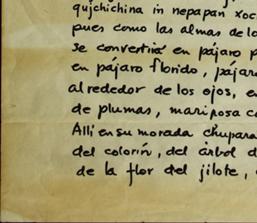 qujchichina in nepapan xoc
pues como las almas de lo
se convertira en pájaro p
en pájaro florido, pájar
alrededor de los ojos, e
de plumas, mariposa c
Alli en su morada chupara
del colorín, del árbol d
de la flor del jilote,